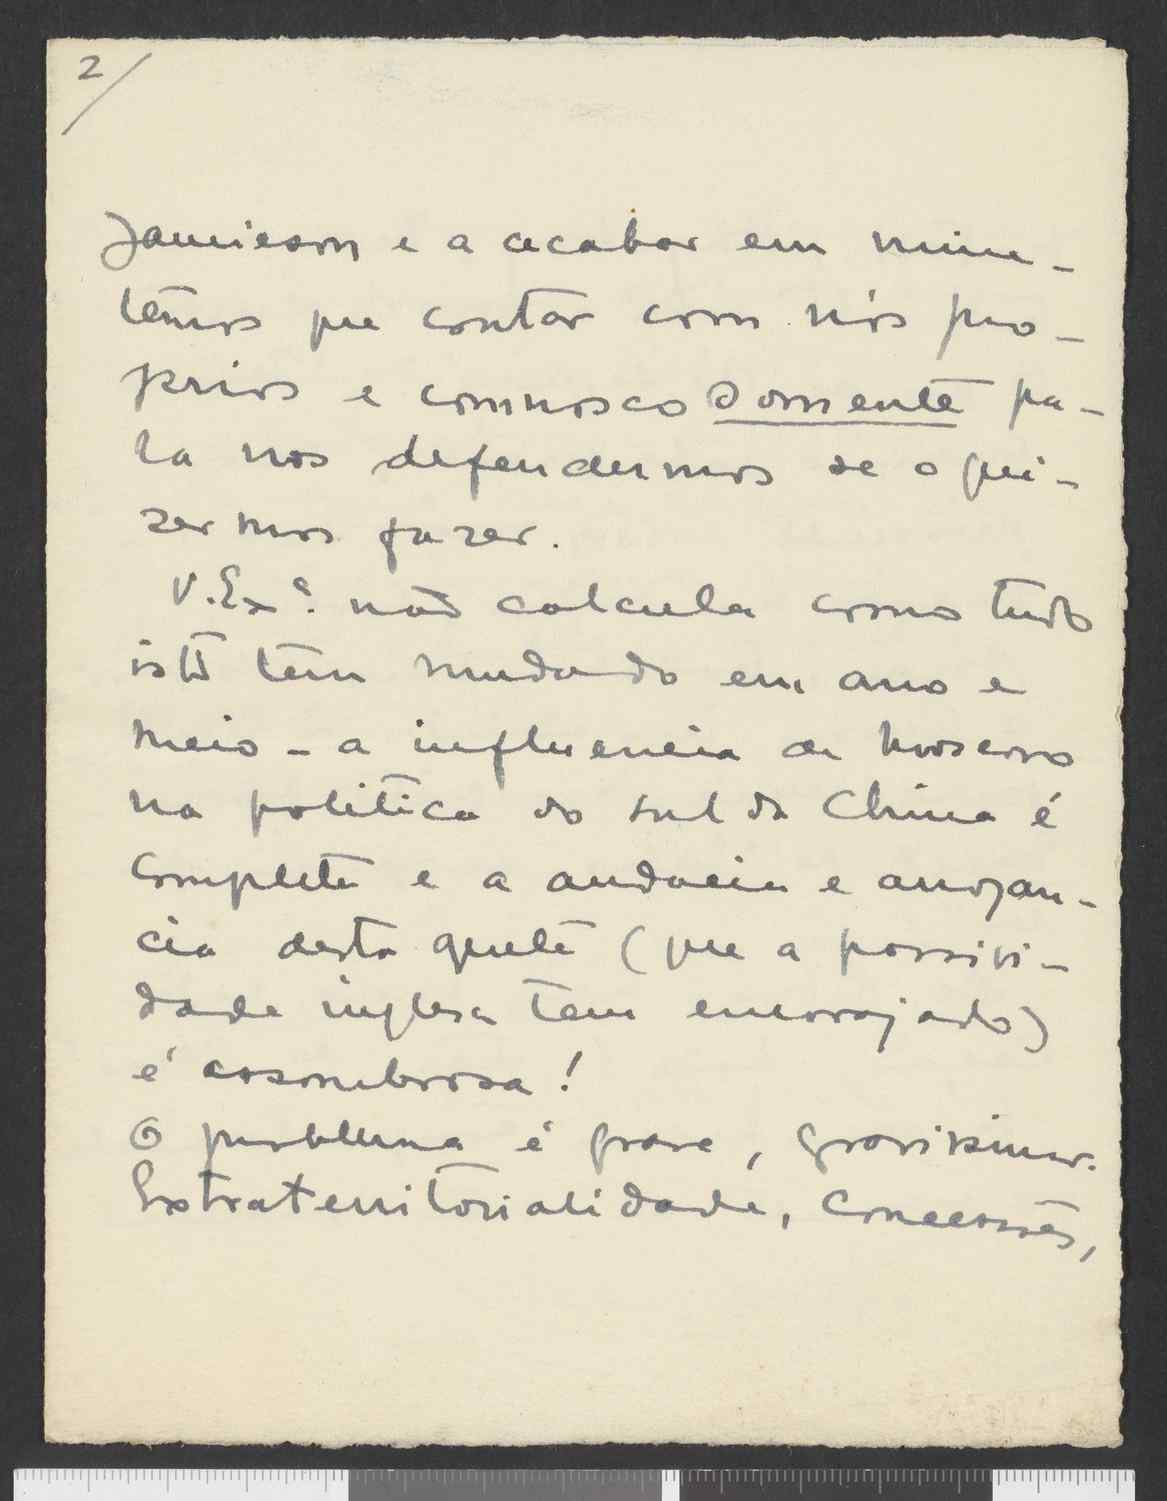 2/
Jamieson e a acabar em mim -
têmos que contar com nós pro-
prios e comnosco somente pa-
ra nos defendermos se o qui-
zermos fazer.
V. Exª. não calcula como tudo
isto tem mudado em ano e
meio - a influencia de Moscovo
na politica do sul da China é
completa e a audacia e arrogan-
cia desta gente (que a passivi-
dade inglesa tem encorajado)
é assombrosa!
O problema é grave, gravissimo.
Extraterritorialidade, Concessões,